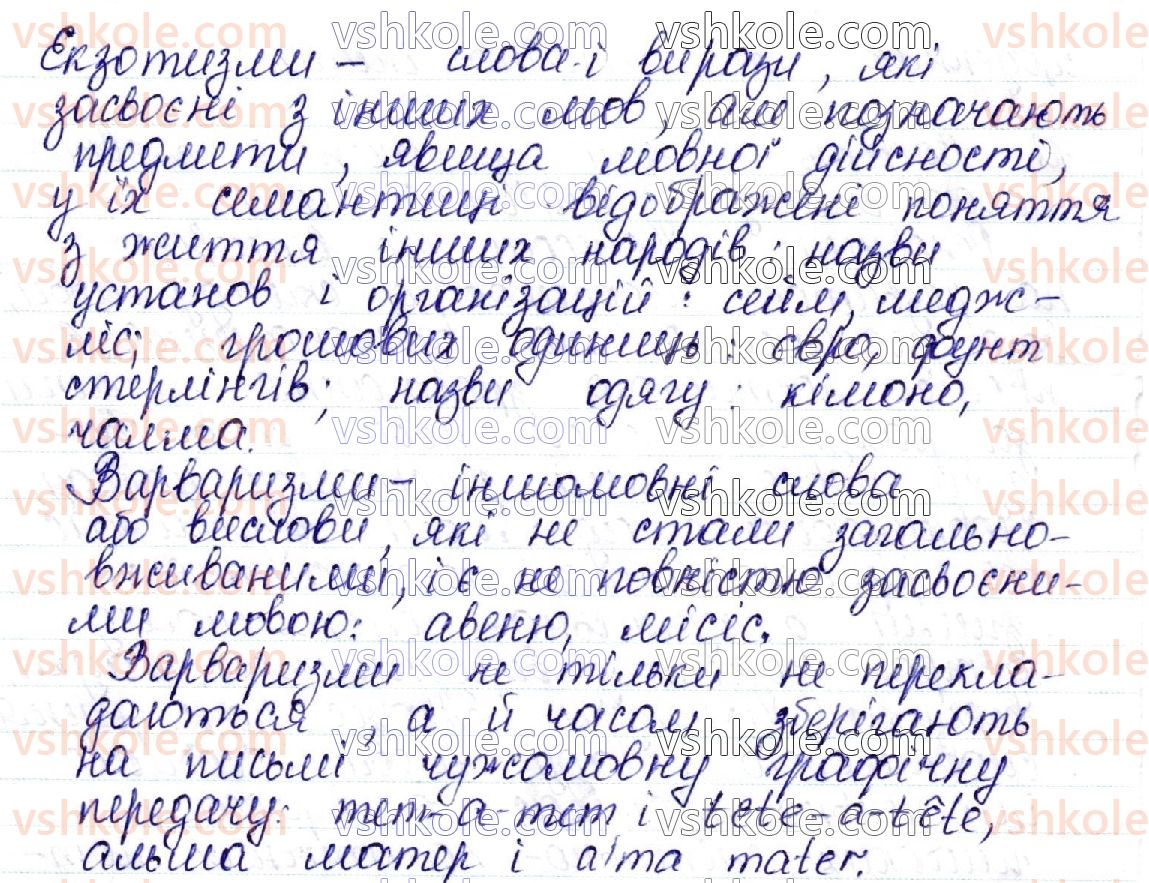 Екзотизми – слова і вирази, які
засвоєні з інших мов, але позначають
предмети, явища мовної дійсності,
у їх семантиці відображені поняття
з життя інших народів: назви
установ і організацій: сейм, медж-
ліс; грошових одиниць: євро, фунт
стерлінгів; назви одягу: кімоно,
чалма.
Варваризми – іншомовні слова
або вислови, які не стали загально-
вживаними, і є не повністю засвоєни-
ми мовою: авеню, місіс.
Варваризми не тільки не перекла-
даються, а й часом зберігають
на письмі чужомовну графічну
передачу: тет-а-тет і tete-a-tête,
альма матер і alma mater.
vshkole.com